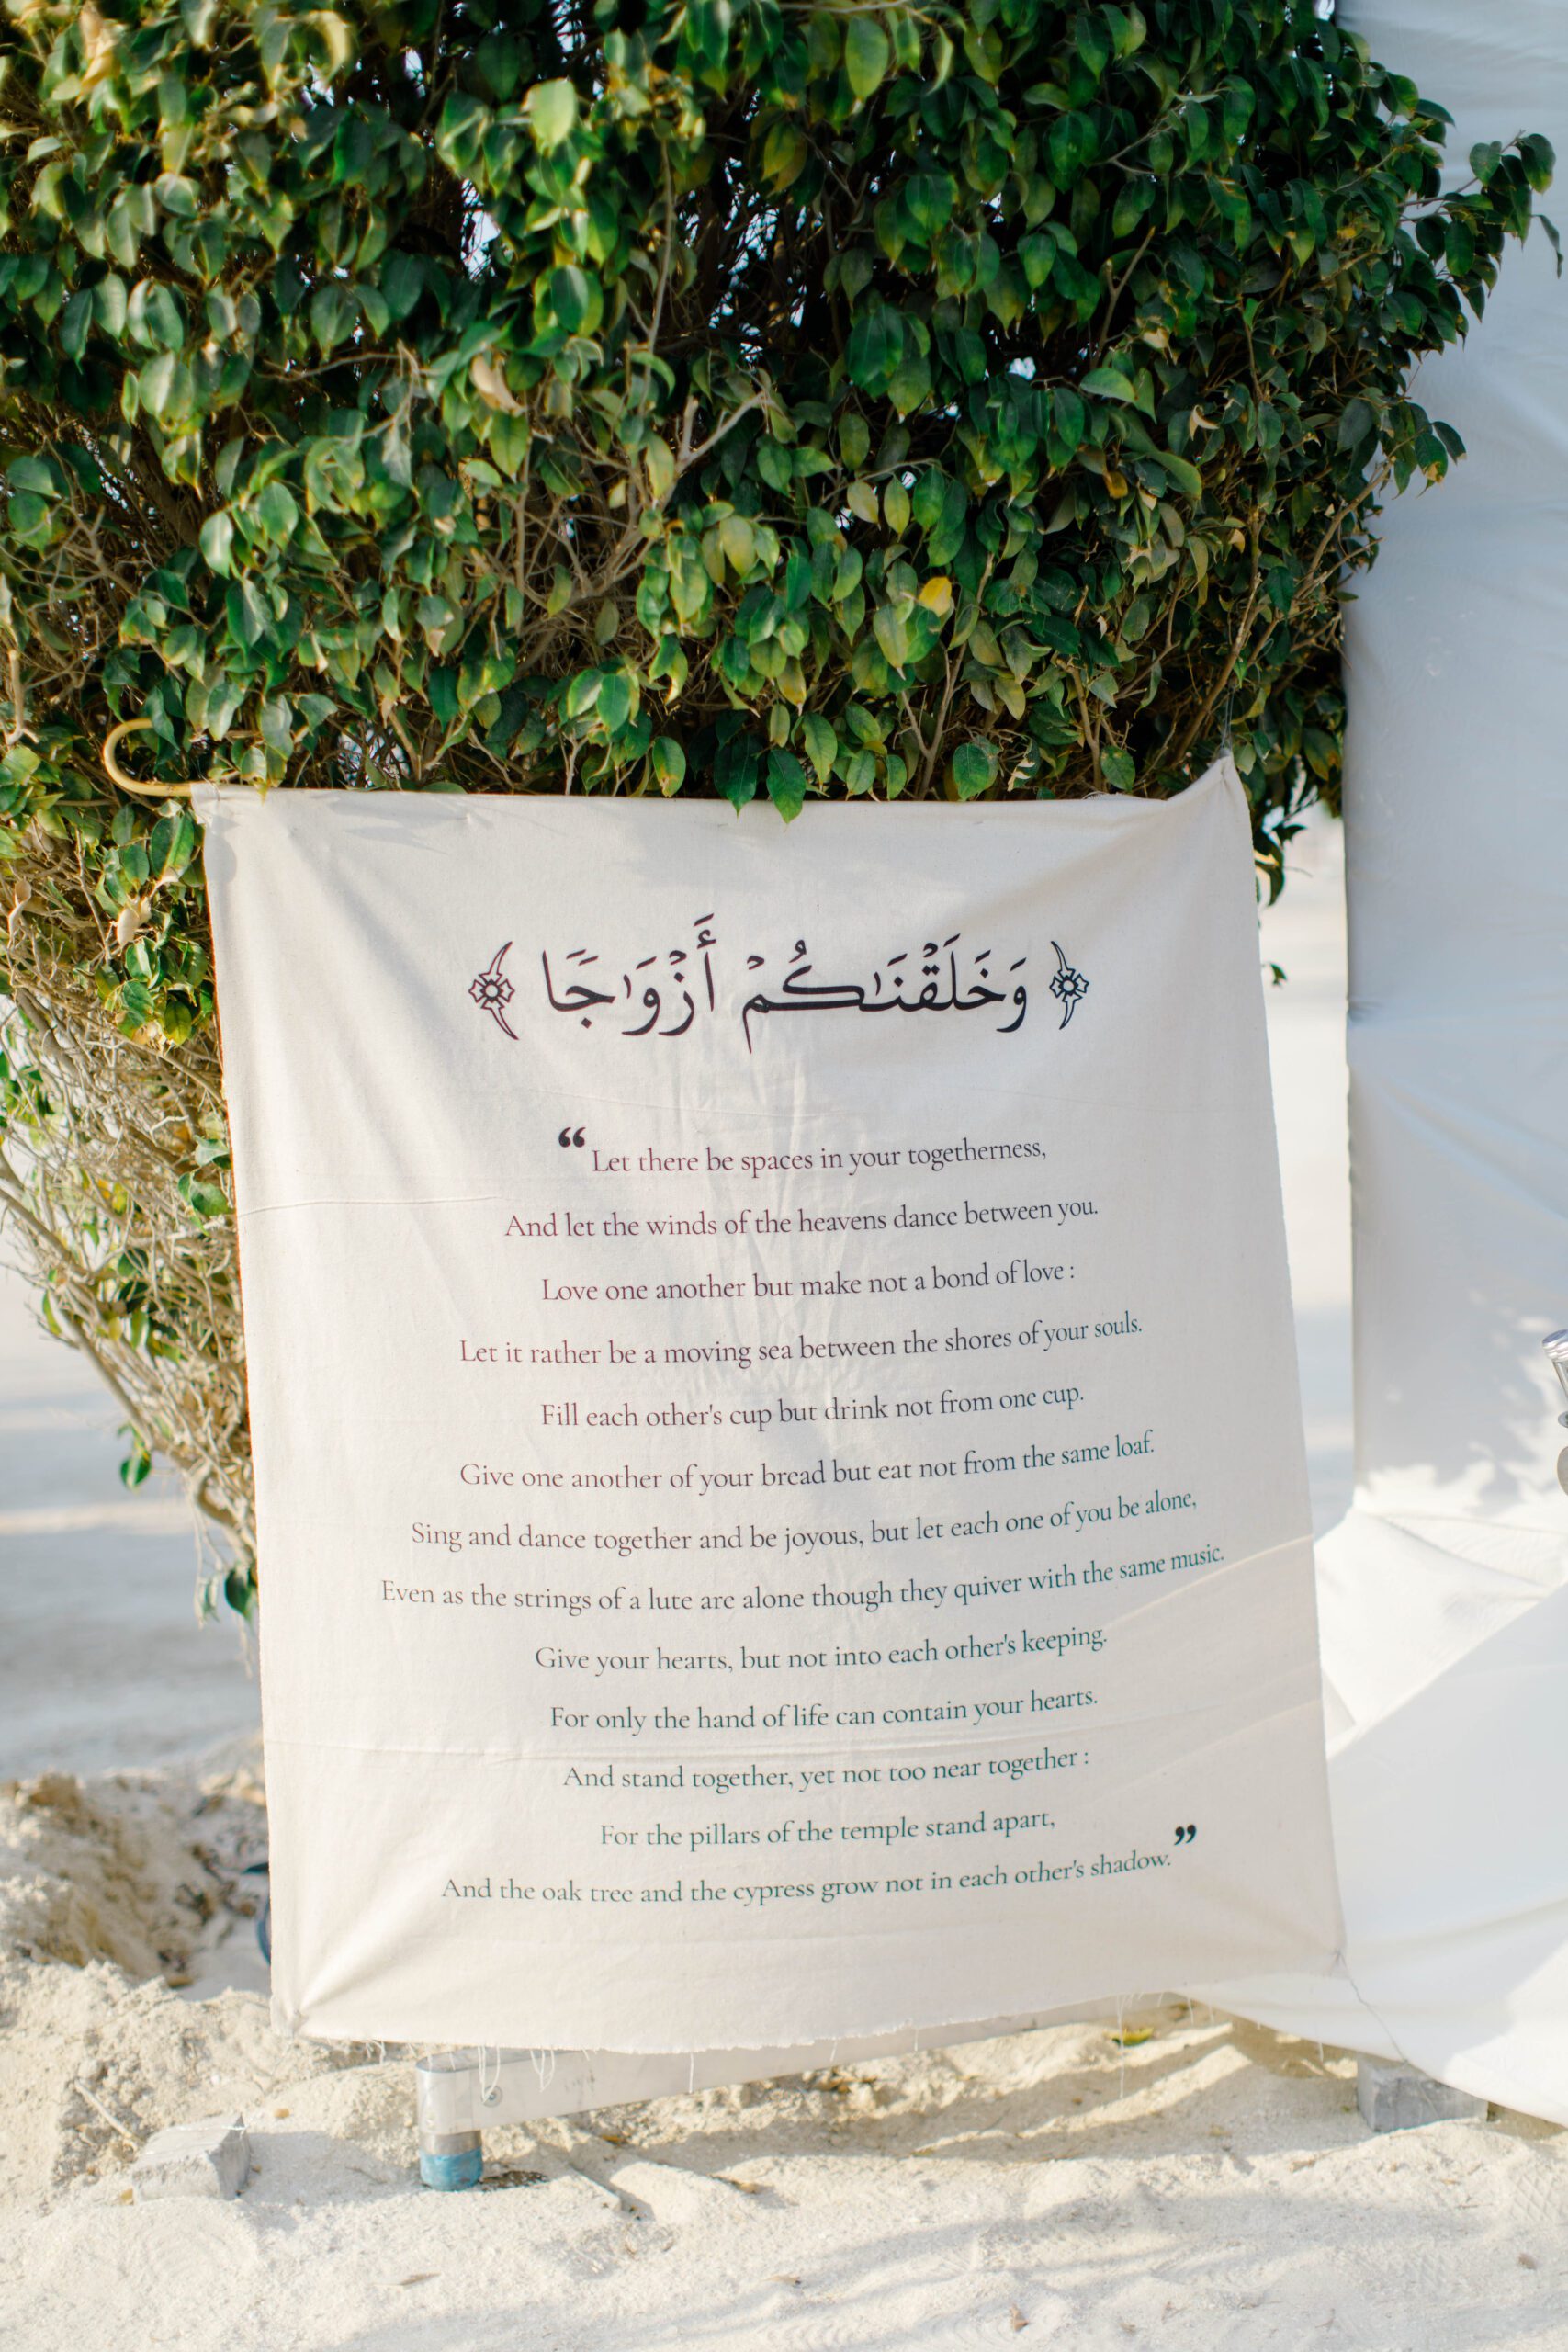 ﴿ وَخَلَقْنَـٰكُمْ أَزْوَٰجًا ﴾
“Let there be spaces in your togetherness,
And let the winds of the heavens dance between you.
Love one another but make not a bond of love :
Let it rather be a moving sea between the shores of your souls.
Fill each other's cup but drink not from one cup.
Give one another of your bread but eat not from the same loaf.
Sing and dance together and be joyous, but let each one of you be alone,
Even as the strings of a lute are alone though they quiver with the same music.
Give your hearts, but not into each other's keeping.
For only the hand of life can contain your hearts.
And stand together, yet not too near together :
For the pillars of the temple stand apart,
And the oak tree and the cypress grow not in each other's shadow.”